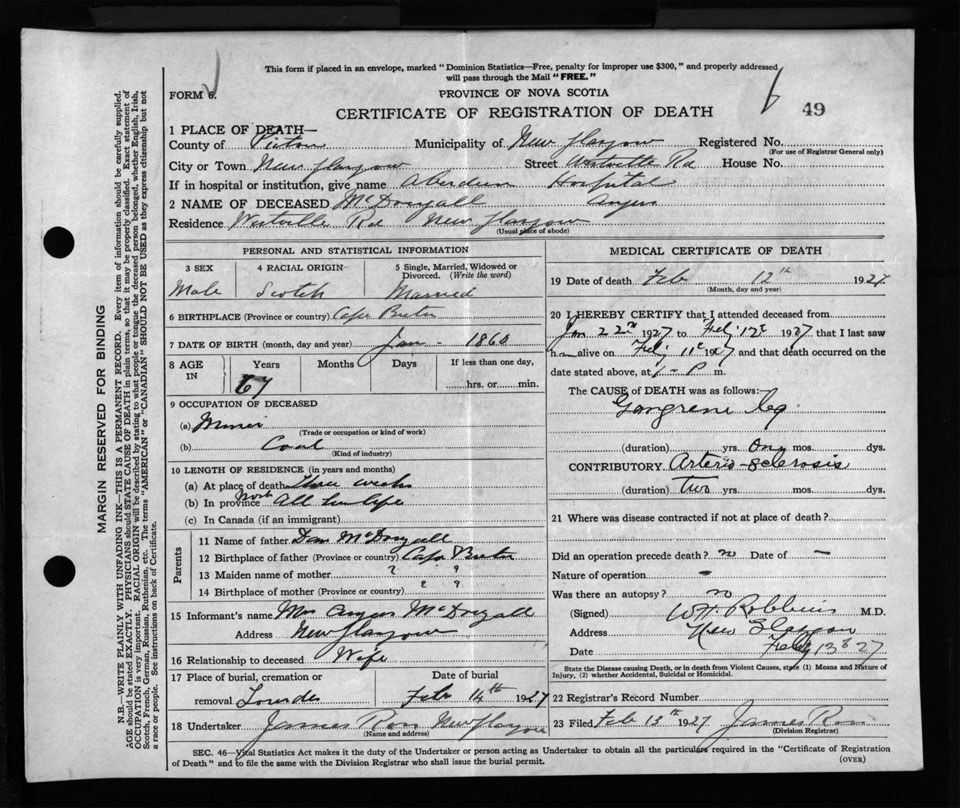 This form if placed in an envelope, marked "Dominion Statistics—Free, penalty for improper use $300," and properly addressed
will pass through the Mail "FREE."
FORM 6.
PROVINCE OF NOVA SCOTIA
CERTIFICATE OF REGISTRATION OF DEATH
49
1 PLACE OF DEATH—
County of Pictou Municipality of New Glasgow Registered No.
(For use of Registrar General only)
City or Town New Glasgow Street Westville Rd House No.
If in hospital or institution, give name Aberdeen Hospital
2 NAME OF DECEASED McDougall Angus
Residence Westville Rd New Glasgow
(Usual place of abode)
PERSONAL AND STATISTICAL INFORMATION
3 SEX
Male
4 RACIAL ORIGIN
Scotch
5 Single, Married, Widowed or
Divorced. (Write the word)
Married
6 BIRTHPLACE (Province or country) Cape Breton
7 DATE OF BIRTH (month, day and year) Jan - 1860
8 AGE
IN
Years
67
Months
Days
If less than one day,
hrs. or min.
9 OCCUPATION OF DECEASED
(a) Miner
(Trade or occupation or kind of work)
(b) Coal
(Kind of industry)
10 LENGTH OF RESIDENCE (in years and months)
(a) At place of death three weeks
(b) In province All his life
(c) In Canada (if an immigrant)
Parents
11 Name of father Dan McDougall
12 Birthplace of father (Province or country) Cape Breton
13 Maiden name of mother ? ?
14 Birthplace of mother (Province or country) ? ?
15 Informant's name Mrs Angus McDougall
Address New Glasgow
16 Relationship to deceased Wife
17 Place of burial, cremation or
removal Lourdes
Date of burial
Feb 14th 1927
18 Undertaker James Ross New Glasgow
(Name and address)
MEDICAL CERTIFICATE OF DEATH
19 Date of death Feb 12th 1927
(Month, day and year)
20 I HEREBY CERTIFY that I attended deceased from
Jan 22nd 1927 to Feby 12th 1927 that I last saw
him alive on Feby 11th 1927 and that death occurred on the
date stated above, at 1 - P m.
The CAUSE of DEATH was as follows:
Gangrene leg
(duration) yrs. One mos. dys.
CONTRIBUTORY Arterio-sclerosis
(duration) Two yrs. mos. dys.
21 Where was disease contracted if not at place of death?
Did an operation precede death? no Date of —
Nature of operation -
Was there an autopsy? no
(Signed) W.F. Robbins M.D.
Address New Glasgow
Date Feby 13th 27
State the Disease causing Death, or in death from Violent Causes, state (1) Means and Nature of
Injury, (2) whether Accidental, Suicidal or Homicidal.
22 Registrar's Record Number
23 Filed Feb 12th 1927 James Ross
(Division Registrar)
SEC. 46—Vital Statistics Act makes it the duty of the Undertaker or person acting as Undertaker to obtain all the particulars required in the "Certificate of Registration
of Death" and to file the same with the Division Registrar who shall issue the burial permit.
(OVER)
MARGIN RESERVED FOR BINDING
N.B.—WRITE PLAINLY WITH UNFADING INK—THIS IS A PERMANENT RECORD. Every item of information should be carefully supplied.
AGE should be stated EXACTLY. PHYSICIANS should STATE CAUSE OF DEATH in plain terms, so that it may be properly classified. Exact statement of
OCCUPATION is very important. RACIAL ORIGIN will be described by stating to what people or tongue the deceased person belonged, whether English, Irish,
Scotch, French, German, Russian, Ruthenian, etc. The terms "AMERICAN" or "CANADIAN" SHOULD NOT BE USED as they express citizenship but not
a race or people. See instructions on back of Certificate.